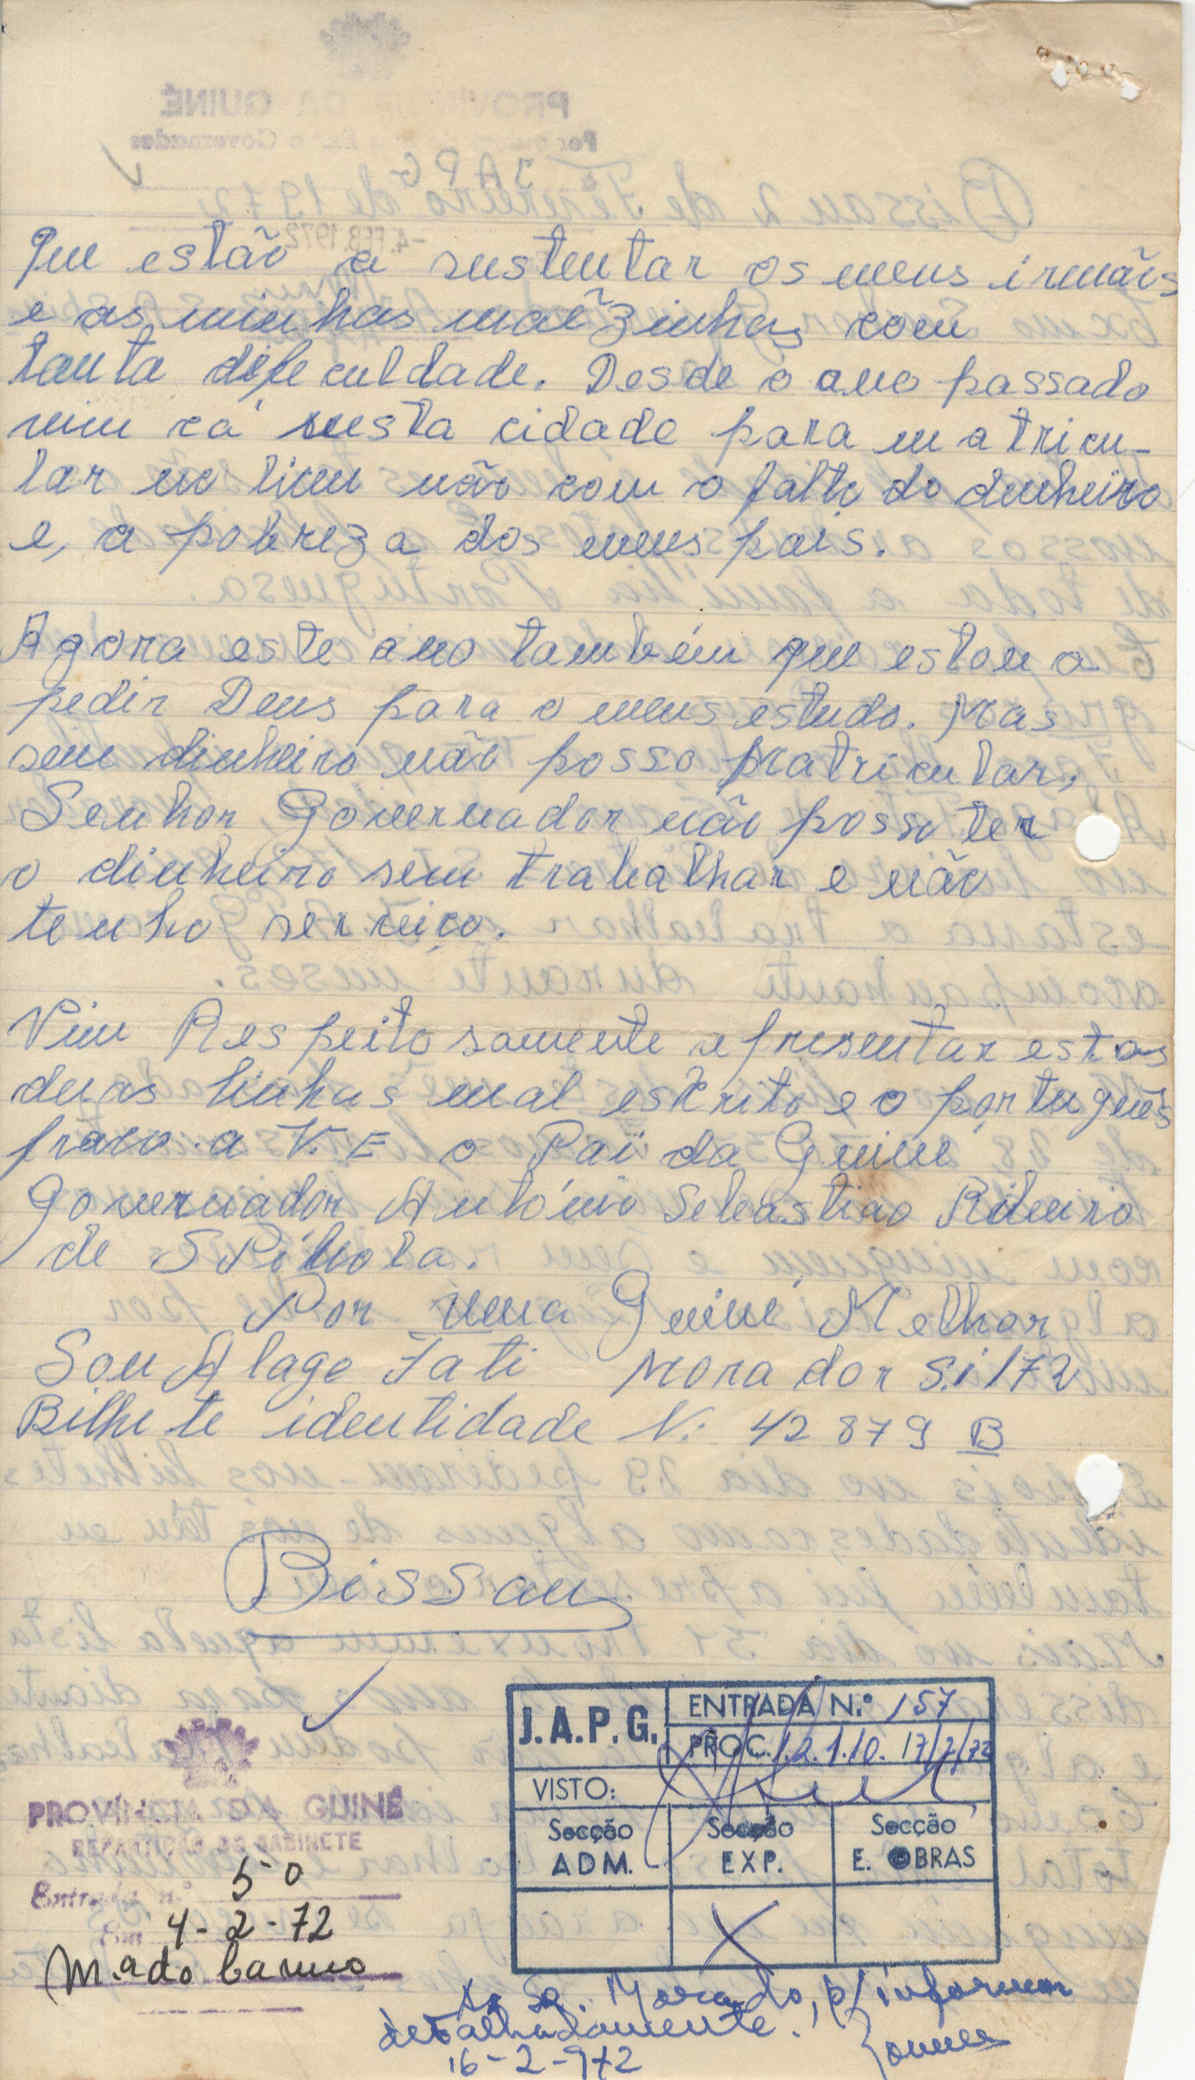 Que estão a sustentar os meus irmãis
e as minhas maẽzinhas com
tanta dife culdade. Desde o ano passado
vim cá nesta cidade para matricu-
lar no liceu não com o falta do dinheiro
e, a pobreza dos meus pais.
Agora este ano também que estou a
pedir Deus para o meus estudo. Mas
sem dinheiro não posso Matricular,
Senhor Governador não posso ter
o dinheiro sem trabalhar e não
tenho serviço.
Vim Respeitosamente apresentar estas
duas linhas mal escrito e o português
fraco. a V. E o Pai da Guiné
Governador António Sebastiao Ribeiro
de SPínola.
Por uma Guiné Melhor
Sou Alage Fati Morador S.i/72
Bilhete identidade N. 42 879 B
Bissau
J.A.P.G. ENTRADA N.º 157
PROC. 1.2.1.10. 17/2/72
VISTO:
Secção ADM. Secção EXP. Secção E. OBRAS
X
PROVÍNCIA DA GUINÉ
REPARTIÇÃO DE GABINETE
Entrada n.º 50
Em 4-2-72
M.ª do Carmo
Ao Sr. Morgado, p/ informar
detalhadamente.
16-2-972